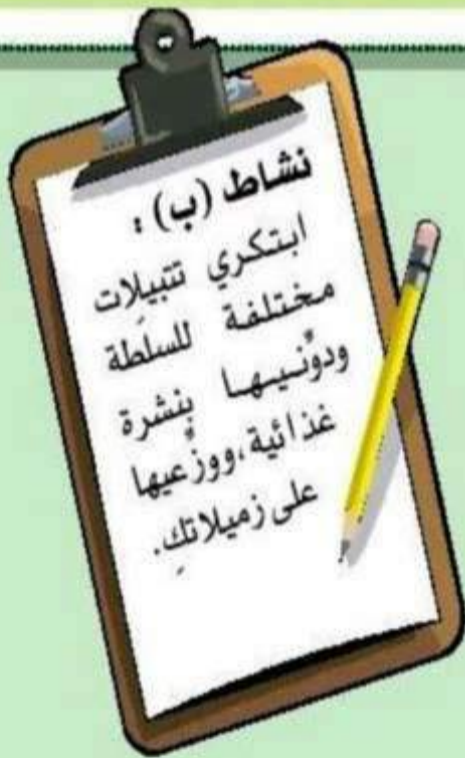 نشاط (ب) :
ابتكري تتبيلات
مختلفة للسلَطة
ودوِّنيها بنشرة
غذائية، ووزِّعيها
على زميلاتكِ.